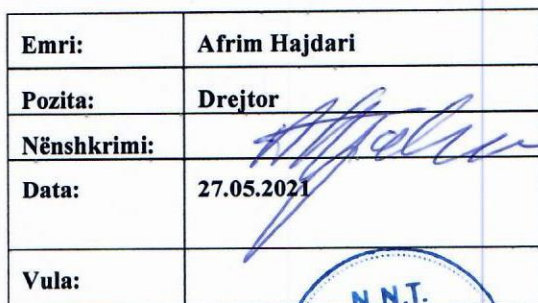 Emri: Afrim Hajdari
Pozita: Drejtor
Nënshkrimi:
Data: 27.05.2021
Vula:
N.N.T.